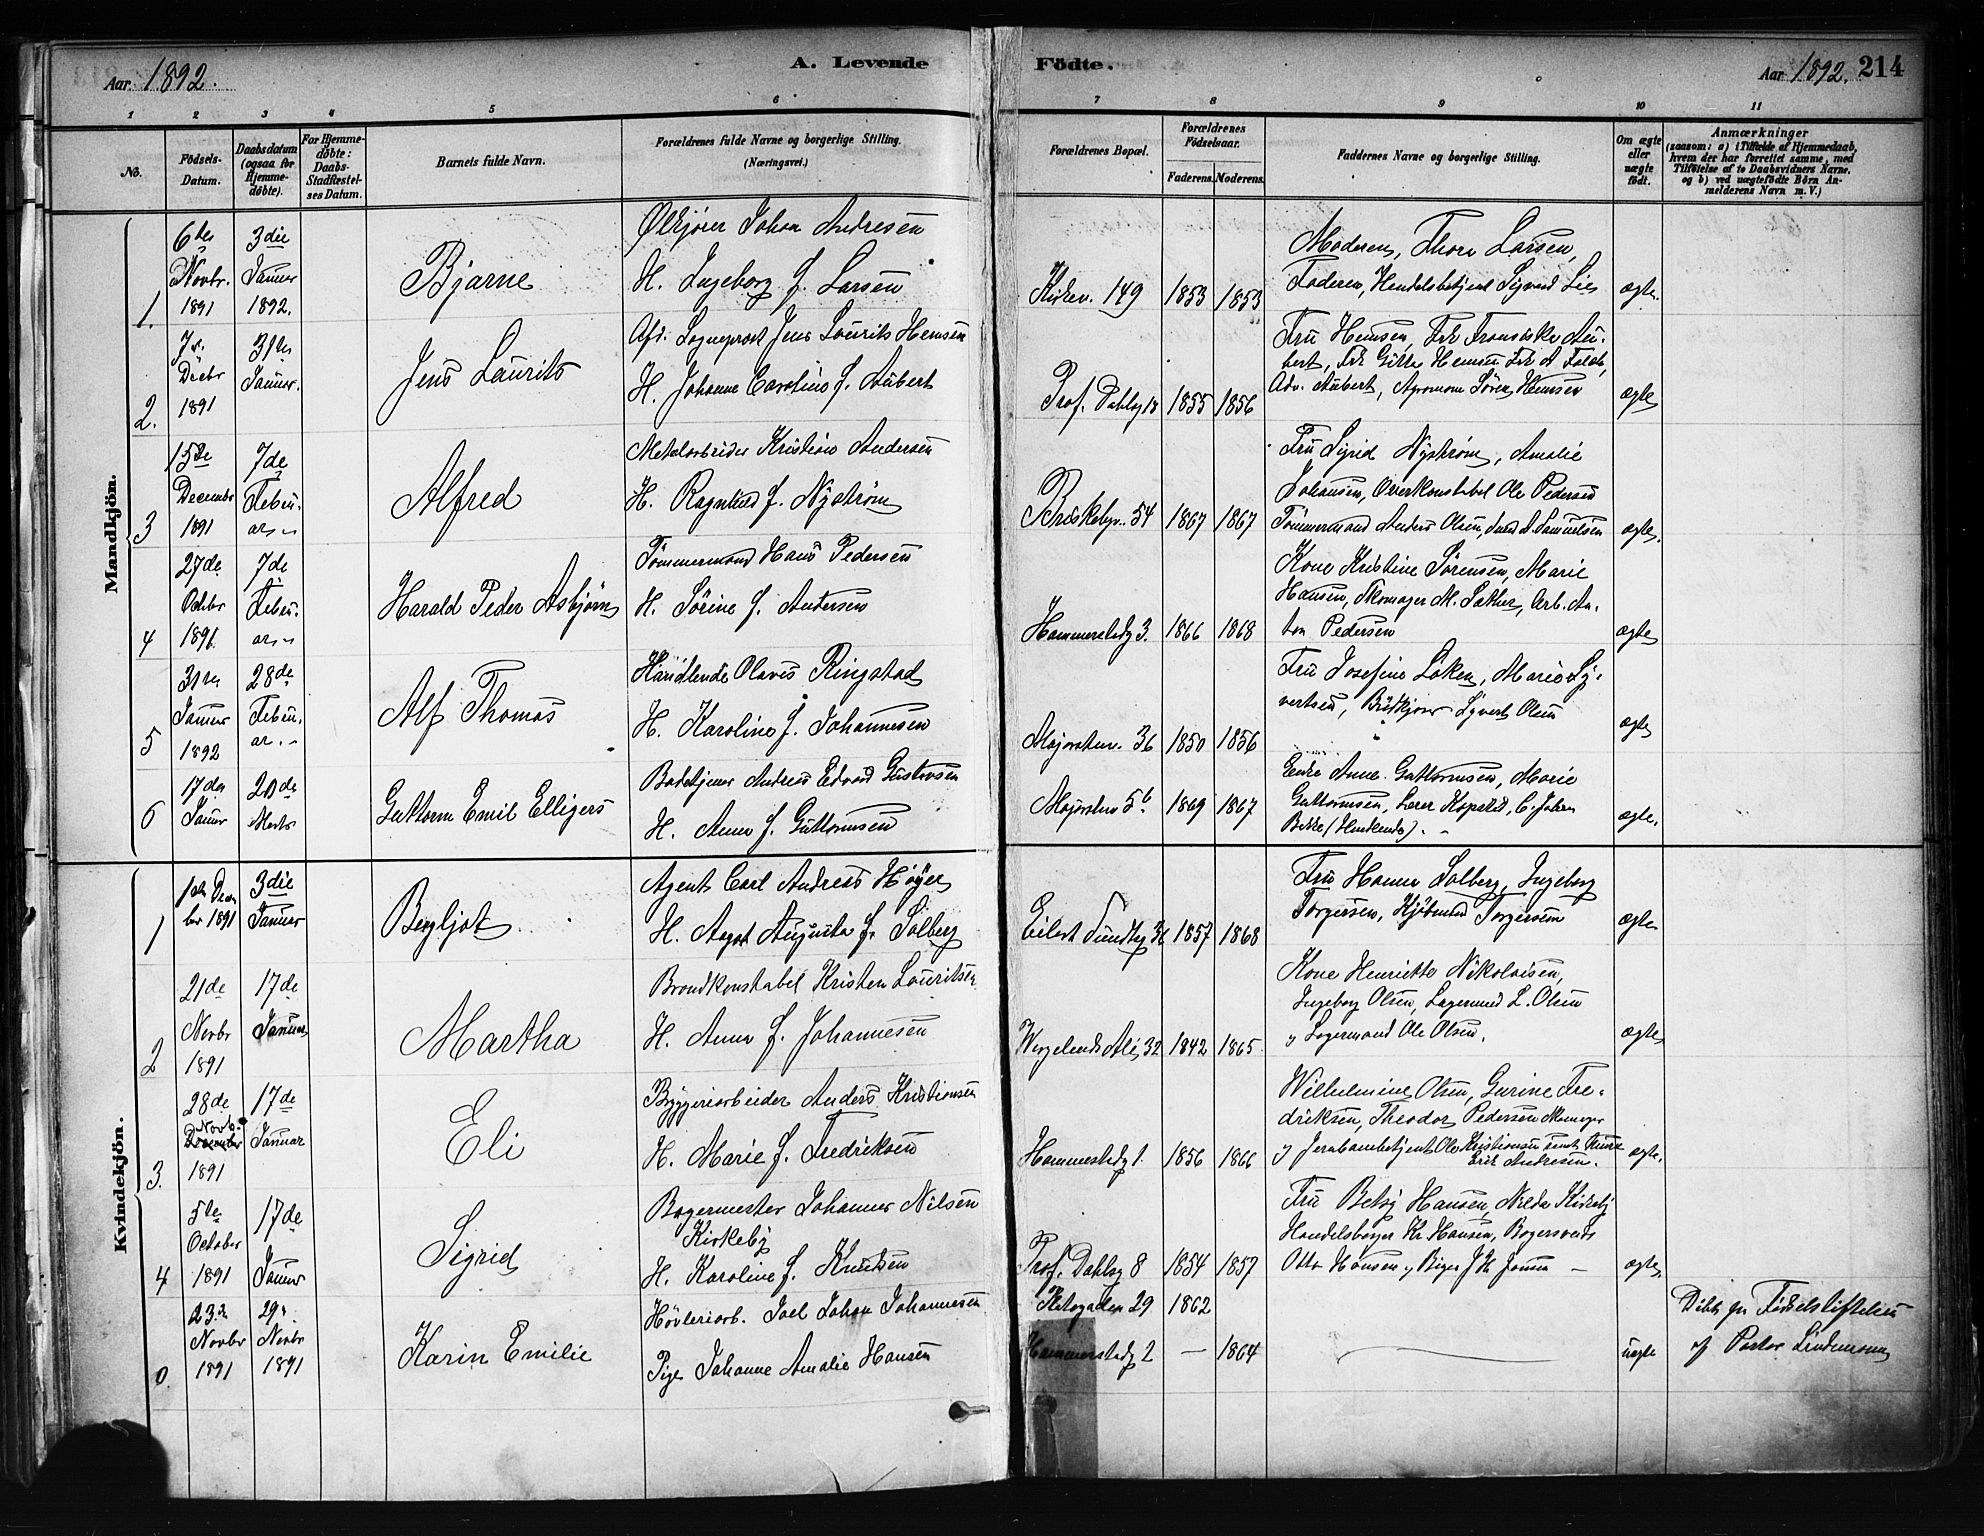 Aar 1892.
A. Levende
Födte.
Aar 1892. 214
1 2 3 4 5 6 7 8 9 10 11
No.
Födsels-Datum.
Daabsdatum (ogsaa for Hjemmedøbte).
For Hjemmedøbte: Daabs-Stadfæstelses Datum.
Barnets fulde Navn.
Forældrenes fulde Navne og borgerlige Stilling.
(Næringsvei.)
Forældrenes Bopæl.
Forældrenes Födselsaar.
Faderens. Moderens.
Faddernes Navne og borgerlige Stilling.
Om ægte eller uægte født.
Anmærkninger
(saasom: a) i Tilfælde af Hjemmedaab, hvem der har forrettet samme, med Tilföielse af to Daabsvidners Navne, og b) ved uægtefödte Börn Anmelderens Navn m. V.)
Mandkjön.
1. 6te Novbr. 1891
3die Januar 1892.
Bjarne
Ølkjører Johan Andresen
H. Ingeborg f. Larsen
Kirkev. 149 1853 1853
Moderen, Thora Larsen,
Faderen, Handelsbetjent Sigvard Lie
ægte.
2. 7de Decbr 1891
31te Januar.
Jens Laurits
Afd. Sogneprest Jens Laurits Hemsen
H. Johanne Caroline f. Aubert
Prof. Dahlsg 18 1855 1856
Fru Hemsen, Frk Fransiske Au-
bert, Frk Gitte Hemsen Frk A
Adv. Aubert, Agronom Sören Hemsen
ægte
3 15de December 1891
7de Februar
Alfred
Metalarbeider Kristian Andersen
H. Ragnhild f. Nyström
Briskebyv. 54 1867 1867
Fru Sigrid Nyström, Amalie
Johansen, Overkonstabel Ole Pedersen
Tömmermand Anders Olsen, A. Samuelsen
ægte.
4 27de Octbr 1891.
7de Februar
Harald Peder Asbjørn
Tömmermand Hans Pedersen
H. Sörine f. Andersen
Hammerstadg 3. 1866 1868
Kone Kristine Sörensen, Marie
Hansen, Skomager M. Sæther, Arb. An-
ton Pedersen
ægte
5 31te Januar 1892
28de Februar
Alf Thomas
Handlende Olaves Ringstad
H. Karoline f. Johannesen
Majorstuv. 36 1850 1856
Fru Josefine Løken, Marie Sy-
vertsen, Brödkjører Syvert Olsen
ægte
6 17de Januar
20de Marts
Guttorm Emil Elligers
Badetjener Andreas Edvard Gustavsen
H. Anna f. Guttormsen
Majorstuv 56 1869 1867
Enke Anne Guttormsen, Marie
Guttormsen, Lærer Kopstad, C. Johan
Bekke (Handlende).
ægte.
Kvindekjön.
1 1ste Decbr 1891
3die Januar
Bergljot
Agent Carl Andreas Høyer
H. Aagot Augusta f. Solberg
Eilert Sundtsg 36 1857 1868
Fru Hanna Solberg, Ingeborg
Torgersen, Kjöbmand Torgersen
ægte
2 21de Novbr 1891
17de Januar
Martha
Brandkonstabel Kristen Lauritsen
H. Anna f. Johannesen
Wergelands Allé 32 1842 1865
Kone Henriette Nikolaisen,
Ingeborg Olsen, Lagermand L. Olsen
og Lagermand Ole Olsen.
ægte
3. 28de Novb. December 1891
17de Januar
Eli
Bryggeriarbeider Anders Kristiansen
H. Marie f. Fredriksen
Hammerstadg 1. 1856 1866
Wilhelmine Olsen, Gurine Fre-
driksen, Theodor Pedersen Skomager
og Jernbanebetjent Ole Kristiansen samt Murer
Erik Andresen.
ægte.
4 5te October 1891
17de Januar
Sigrid
Bagermester Johannes Nilsen
Kirkeby
H. Karoline f. Knudsen
Prof. Dahlsg 8 1854 1857
Fru Betsy Hansen, Nilda Kirkeby
Handelsborger Kr Hansen, Bagersvend
Otto Hansen og Bager J Kr Jansen
ægte.
0. 23de Novbr 1891
29de Novbr 1891
Karin Emilie
Høvleriarb. Joel Johan Johannesen
Pige Johanne Amalie Hansen
29 1862
Hammerstadg 2 — 1864
uægte
Døbt paa Födselsstiftelsen
af Pastor Lindemann